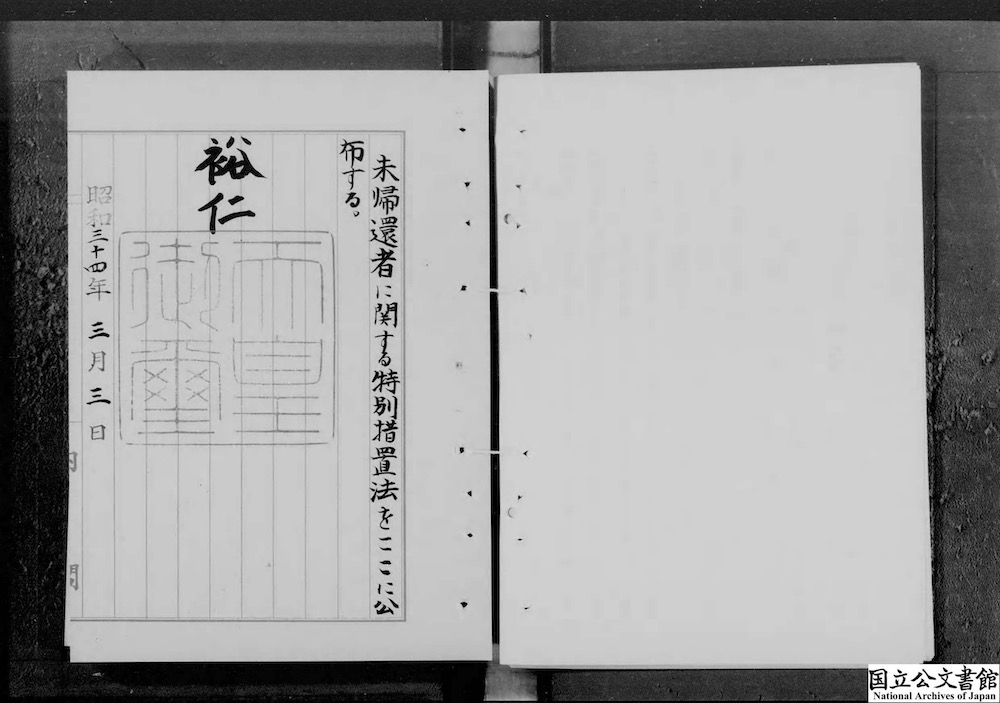 未帰還者に関する特別措置法をここに公
布する。
裕仁
天皇
御璽
昭和三十四年三月三日
内
閣
国立公文書館
National Archives of Japan